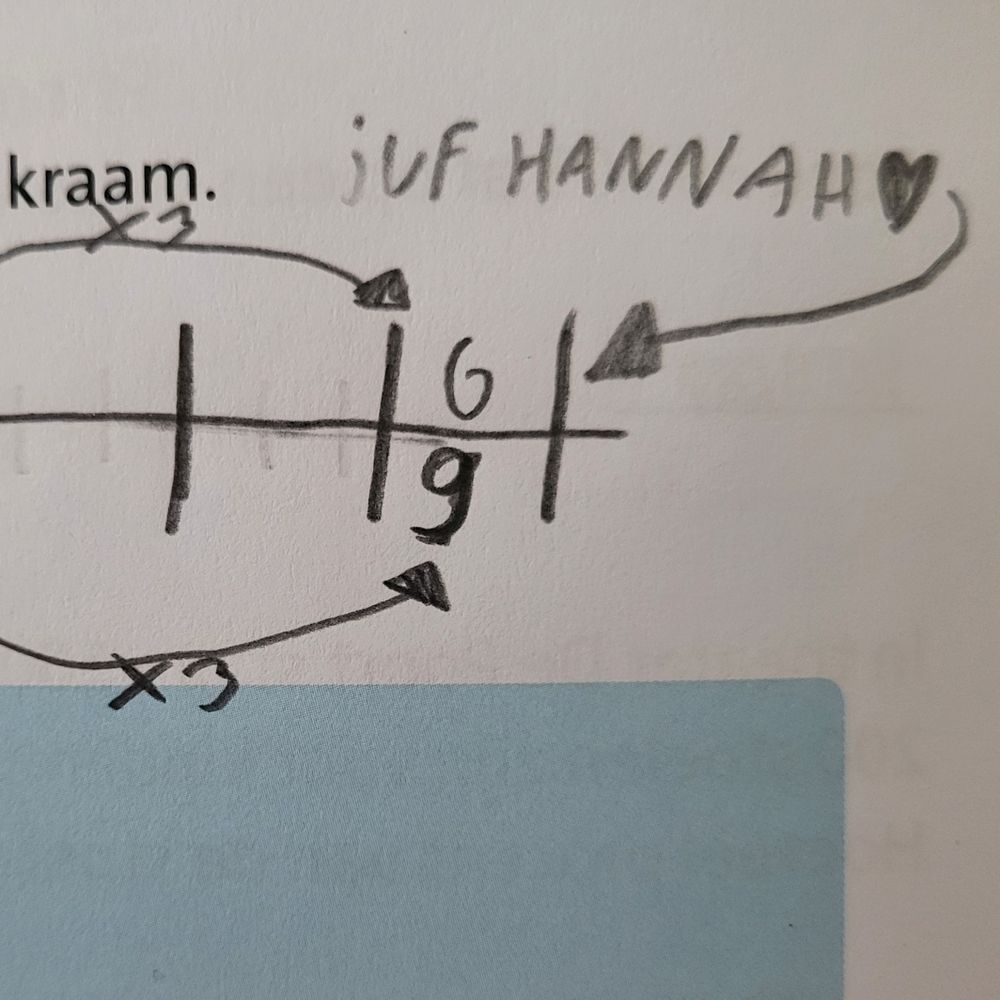 kraam. juf HANNAH ♥
x3
6
9
x3